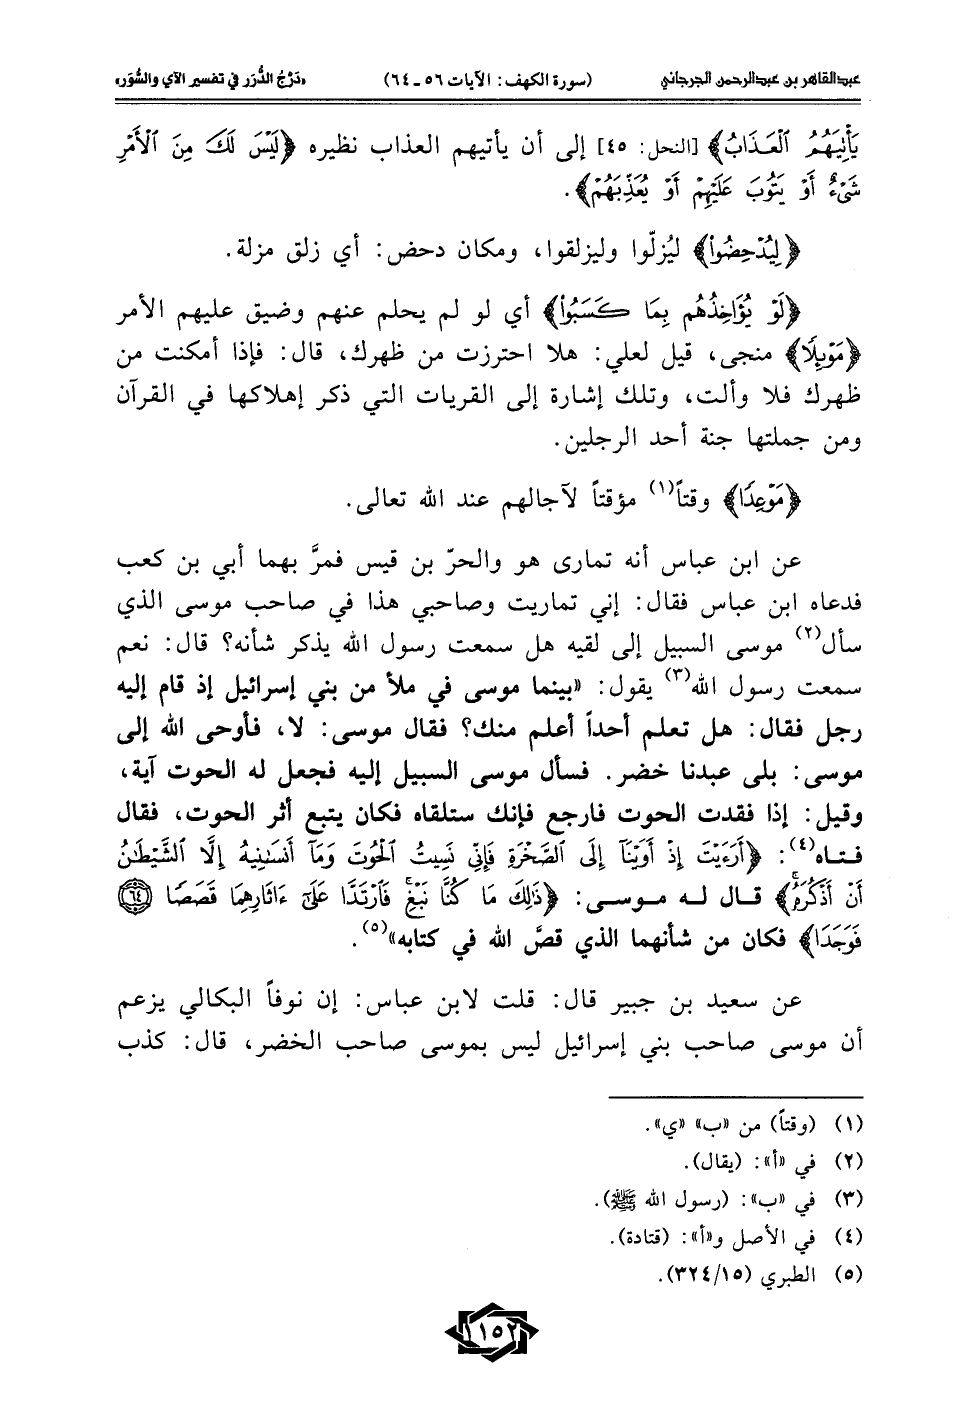 عبدالقاهر بن عبدالرحمن الجرجاني (سورة الكهف: الآيات ٥٦ ـ ٦٤) «دَرْجُ الدُّرَر في تفسير الآي والسُّوَر»
يَأْتِيَهُمُ الْعَذَابُ﴾ [النحل: ٤٥] إلى أن يأتيهم العذاب نظيره ﴿لَيْسَ لَكَ مِنَ الْأَمْرِ
شَيْءٌ أَوْ يَتُوبَ عَلَيْهِمْ أَوْ يُعَذِّبَهُمْ﴾.
﴿لِيُدْحِضُوا﴾ ليُزلّوا وليزلقوا، ومكان دحض: أي زلق مزلة.
﴿لَوْ يُؤَاخِذُهُم بِمَا كَسَبُوا﴾ أي لو لم يحلم عنهم وضيق عليهم الأمر
﴿مَوْئِلًا﴾ منجى، قيل لعلي: هلا احترزت من ظهرك، قال: فإذا أمكنت من
ظهرك فلا وألت، وتلك إشارة إلى القريات التي ذكر إهلاكها في القرآن
ومن جملتها جنة أحد الرجلين.
﴿مَوْعِدًا﴾ وقتاً(١) مؤقتاً لآجالهم عند الله تعالى.
عن ابن عباس أنه تمارى هو والحرّ بن قيس فمرَّ بهما أبي بن كعب
فدعاه ابن عباس فقال: إني تماريت وصاحبي هذا في صاحب موسى الذي
سأل(٢) موسى السبيل إلى لقيه هل سمعت رسول الله يذكر شأنه؟ قال: نعم
سمعت رسول الله(٣) يقول: «بينما موسى في ملأ من بني إسرائيل إذ قام إليه
رجل فقال: هل تعلم أحداً أعلم منك؟ فقال موسى: لا، فأوحى الله إلى
موسى: بلى عبدنا خضر. فسأل موسى السبيل إليه فجعل له الحوت آية،
وقيل: إذا فقدت الحوت فارجع فإنك ستلقاه فكان يتبع أثر الحوت، فقال
فتاه(٤): ﴿أَرَءَيْتَ إِذْ أَوَيْنَا إِلَى الصَّخْرَةِ فَإِنِّي نَسِيتُ الْحُوتَ وَمَا أَنسَانِيهُ إِلَّا الشَّيْطَانُ
أَنْ أَذْكُرَهُ﴾ قال له موسى: ﴿ذَالِكَ مَا كُنَّا نَبْغِ فَارْتَدَّا عَلَى ءَاثَارِهِمَا قَصَصًا ٦٤
فَوَجَدَا﴾ فكان من شأنهما الذي قصَّ الله في كتابه»(٥).
عن سعيد بن جبير قال: قلت لابن عباس: إن نوفاً البكالي يزعم
أن موسى صاحب بني إسرائيل ليس بموسى صاحب الخضر، قال: كذب
(١) (وقتاً) من «ب» «ي».
(٢) في «أ»: (يقال).
(٣) في «ب»: (رسول الله ﷺ).
(٤) في الأصل و«أ»: (قتادة).
(٥) الطبري (١٥/٣٢٤).
١١٥٢